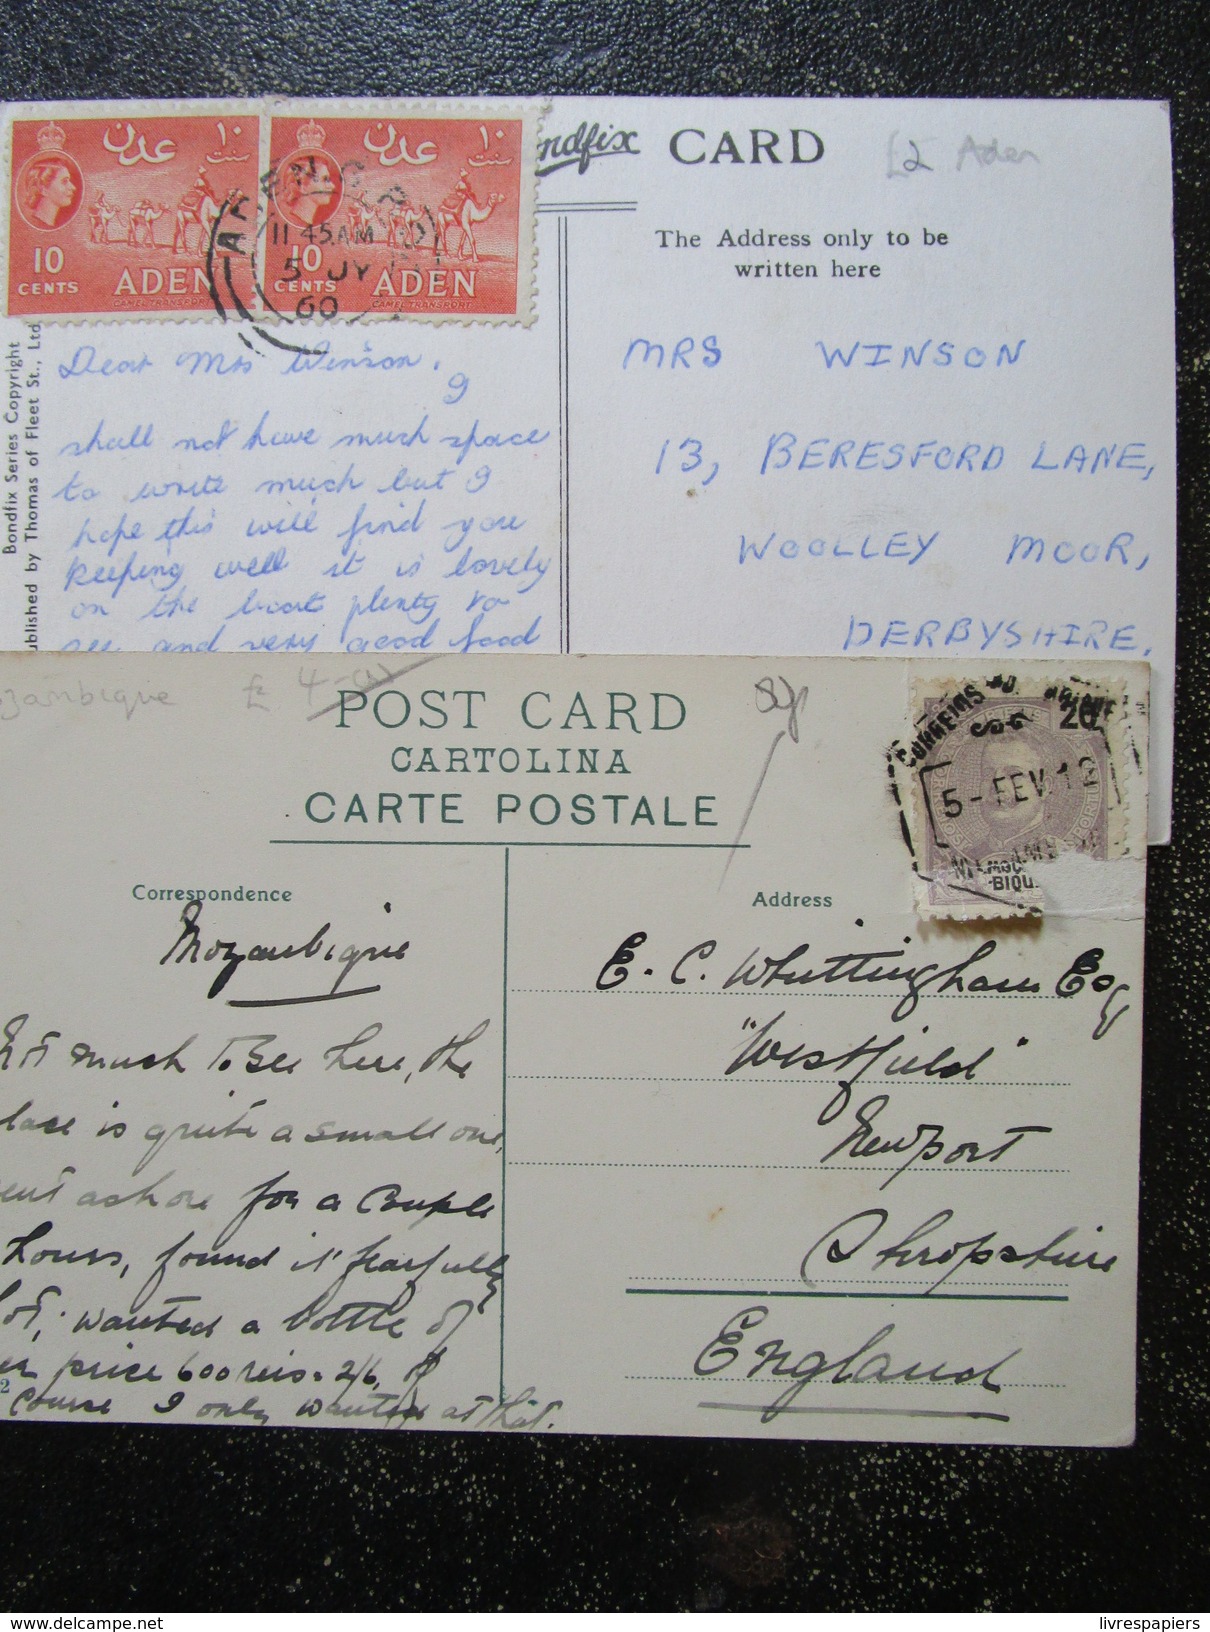 عدن
١٠
سنت
10
CENTS
ADEN
CAMEL TRANSPORT
عدن
١٠
سنت
10
CENTS
ADEN
CAMEL TRANSPORT
ADEN
11 45AM
5 JY
60
ndfix CARD
£2 Aden
The Address only to be
written here
Bondfix Series Copyright
ublished by Thomas of Fleet St., Ltd
Dear Mrs Winson,
I
shall not have much space
to write much but I
hope this will find you
keeping well it is lovely
on the boat plenty to
see and very good food
MRS WINSON
13, BERESFORD LANE,
WOOLLEY MOOR,
DERBYSHIRE.
zambique £
POST CARD
CARTOLINA
CARTE POSTALE
CORREIOS
20
5-FEV.12
-BIQU
Correspondence
Address
Mozambique
Not much to see here, the
lace is quite a small one,
ent ashore for a couple
hours, found it fearfully
ot; wanted a bottle of
er price 600 reis. 2/6, of
course I only wanted at that.
2
E. C. Whittingham Esq
"Westfield"
Newport
Shropshire
England
livrespapiers